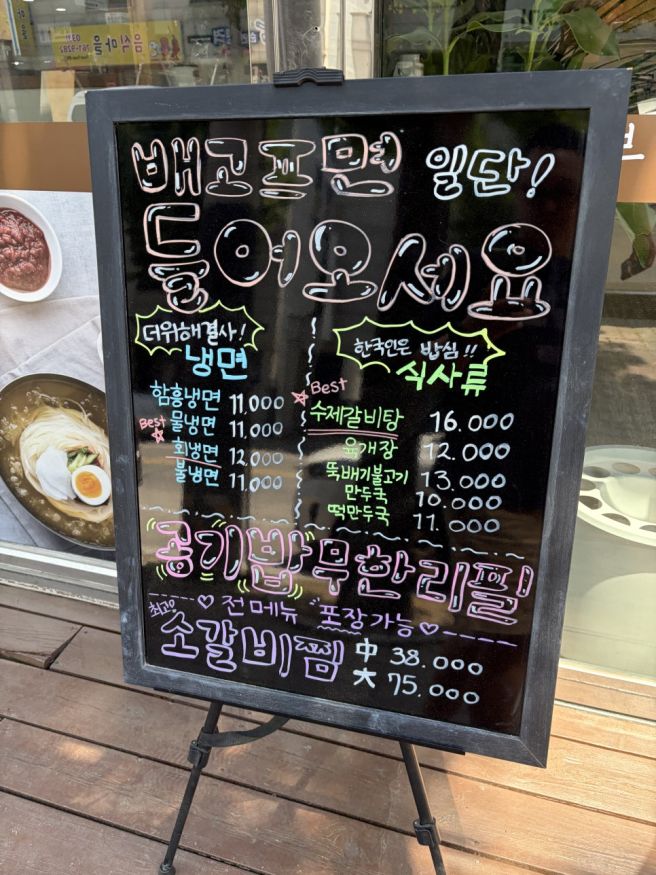 음식마을
배고프면 일단!
들어오세요
더위해결사!
냉면
함흥냉면 11,000
Best 물냉면 11,000
회냉면 12,000
불냉면 11,000
한국인은 밥심!!
식사류
Best
수제갈비탕 16.000
육개장 12.000
뚝배기불고기 13.000
만두국 10.000
떡만두국 11.000
공기밥 무한리필
♡ 전메뉴 포장가능 ♡
최고
소갈비찜 中 38.000
大 75.000